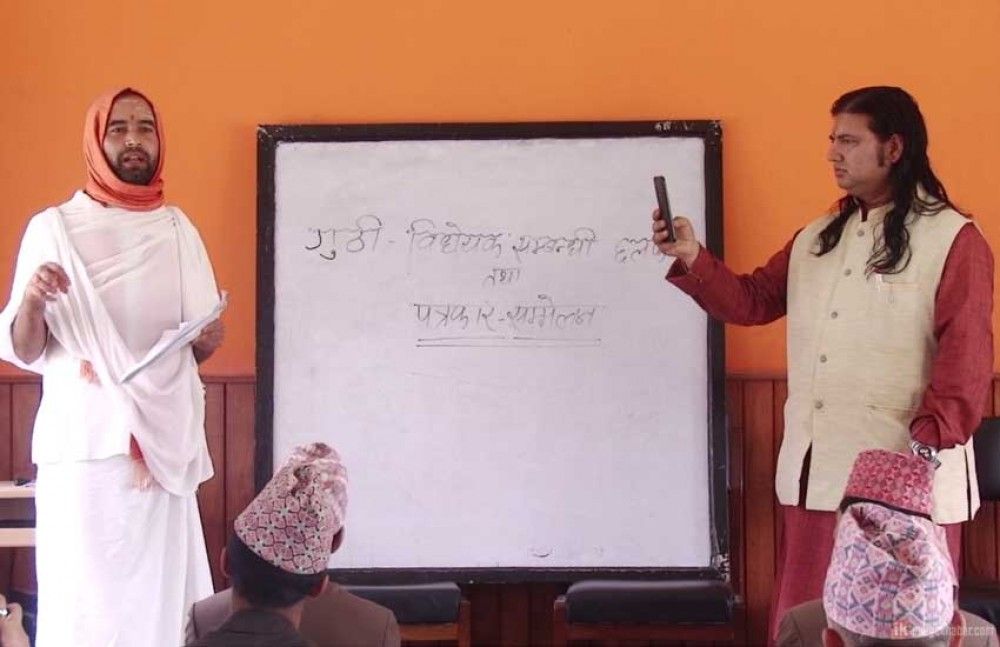 गुठी - विधेयक सम्बन्धी
तथा
पत्रकार-सम्मेलन